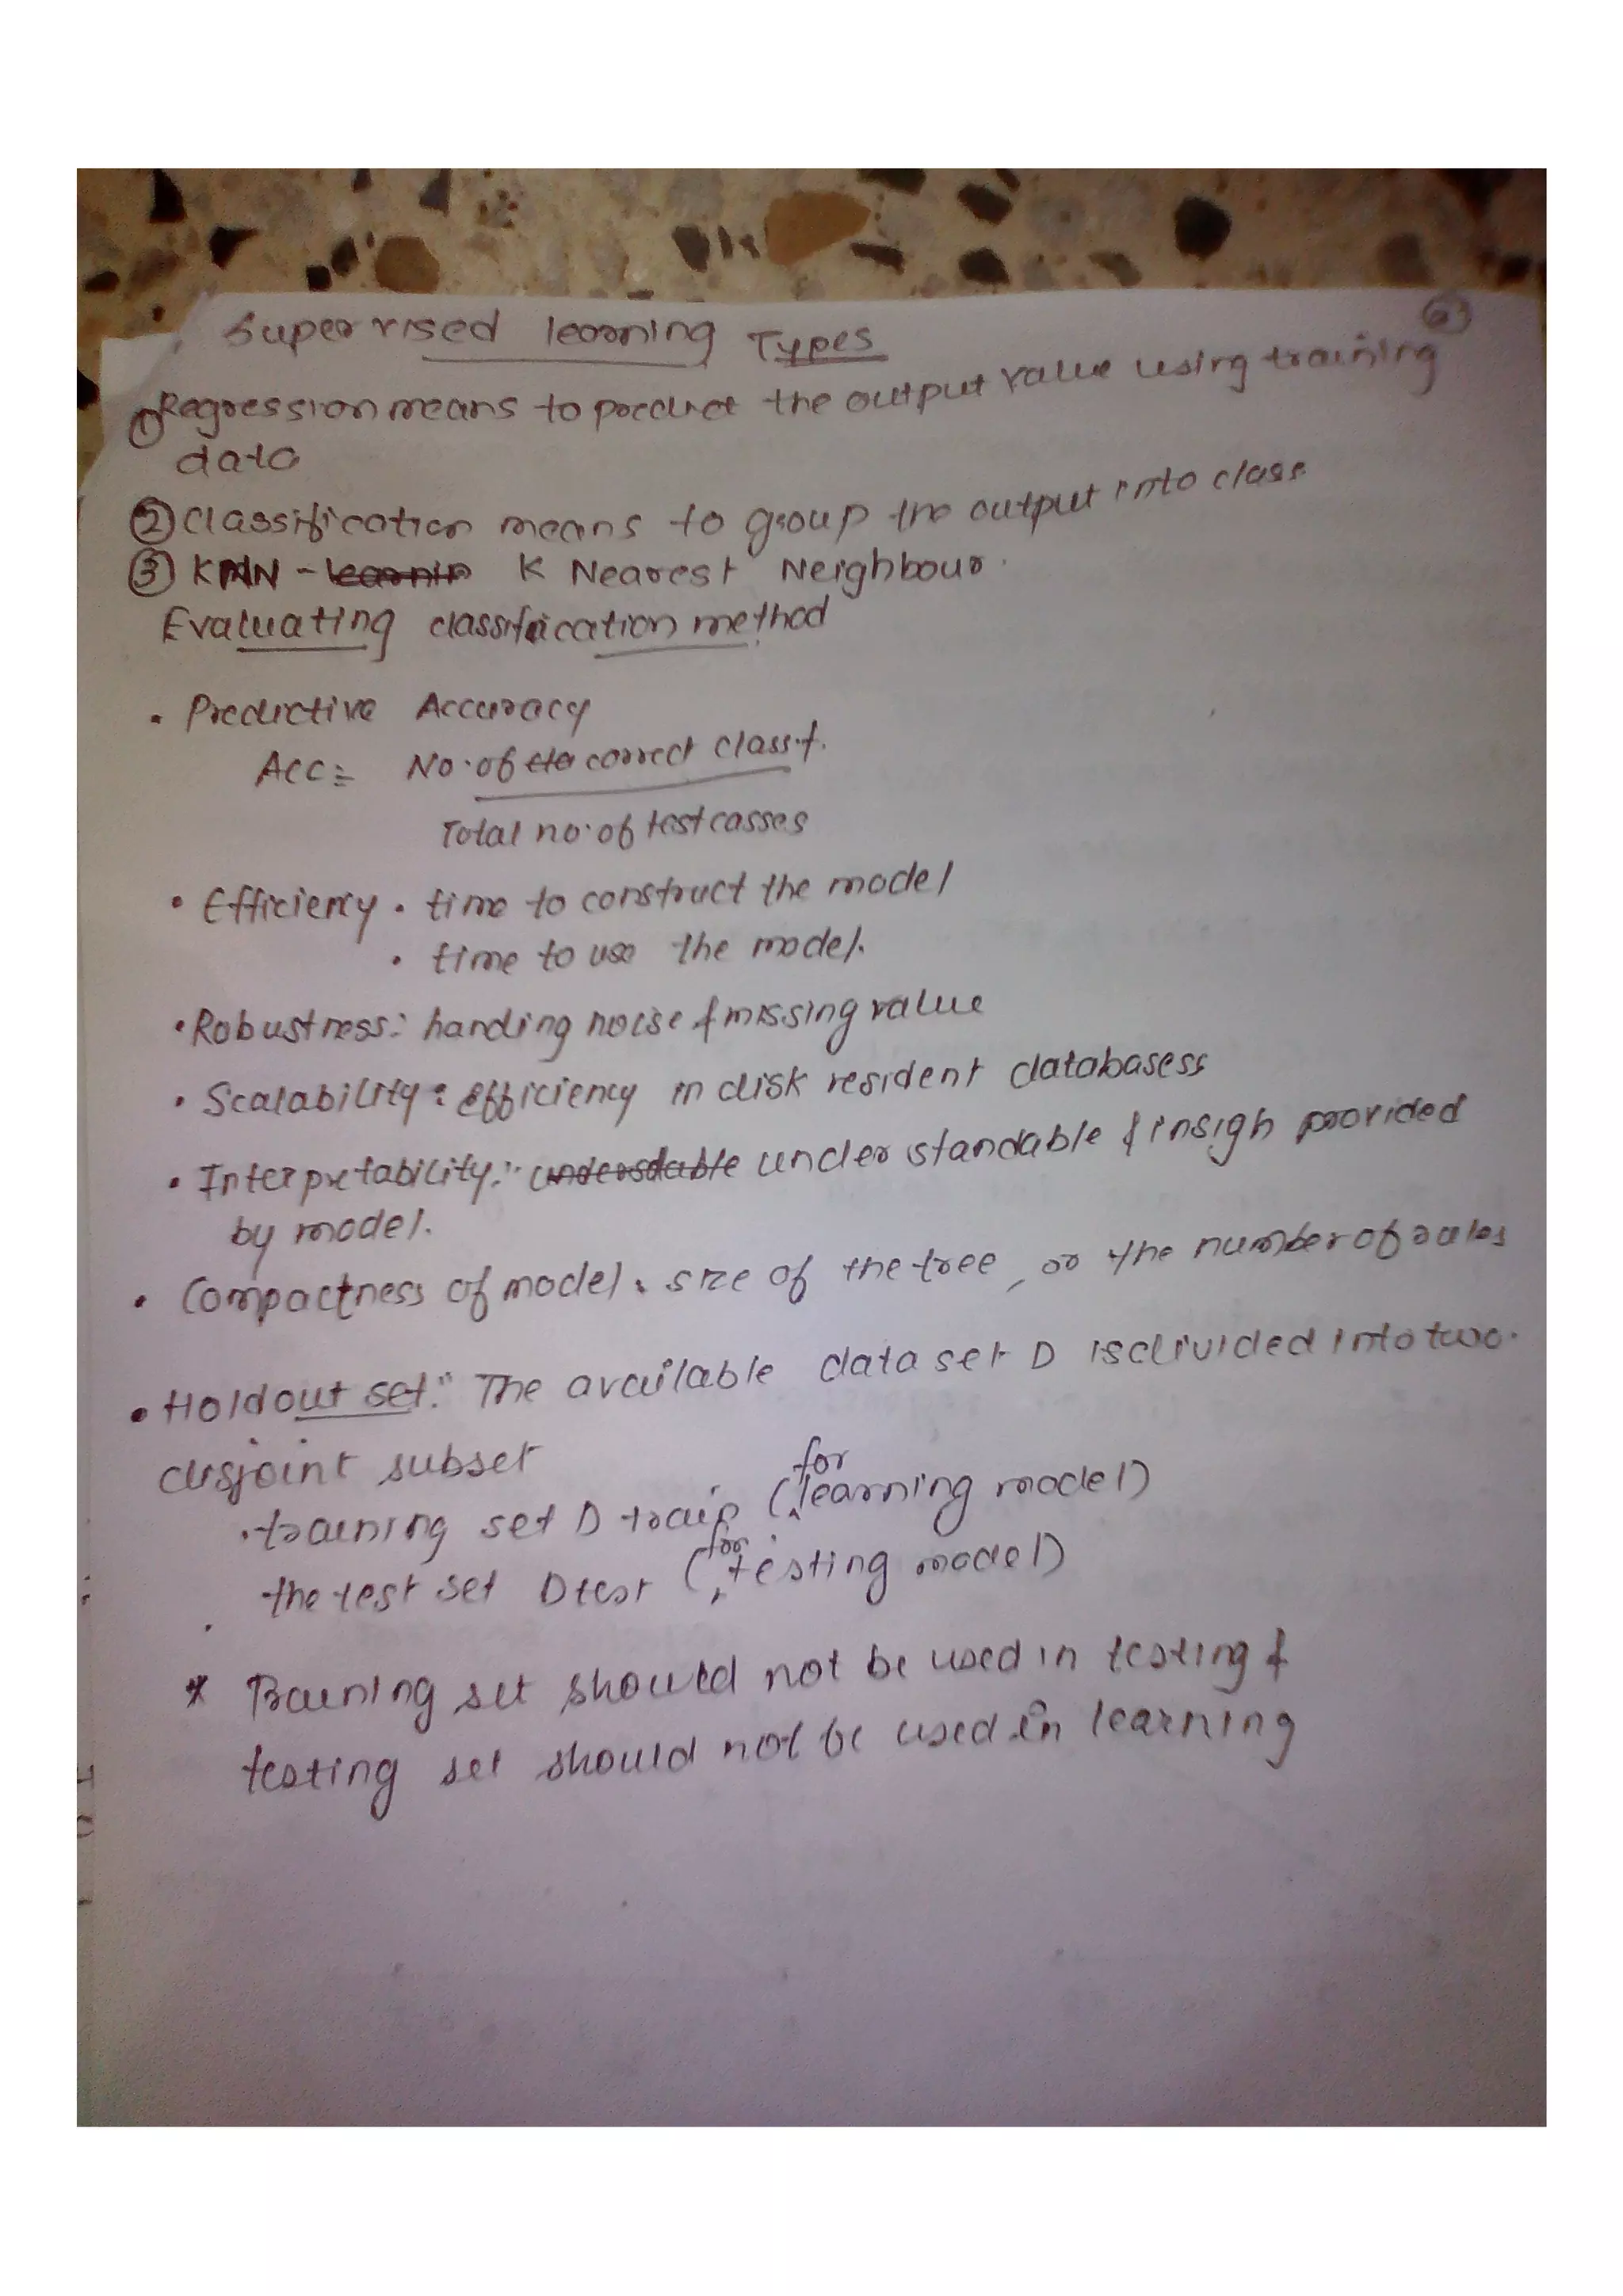 Supervised learning Types
① Regression means to predict the output value using training
data
② Classification means to group the output into class
③ KNN - K Nearest Neighbour.
Evaluating classification method
• Predictive Accuracy
Acc = No. of correct classif.
Total no. of test casses
• Efficiency • time to construct the model
• time to use the model.
• Robustness: handing noise & missing value
• Scalability: efficiency in disk resident databasess
• Interpretability: understandable & insigh provided
by model.
• Compactness of model: size of the tree, or the number of rules
• Holdout set: The available data set D is divided into two
disjoint subset
• training set D train (for learning model)
• the test set D test (for testing model)
* Training set should not be used in testing &
testing set should not be used in learning